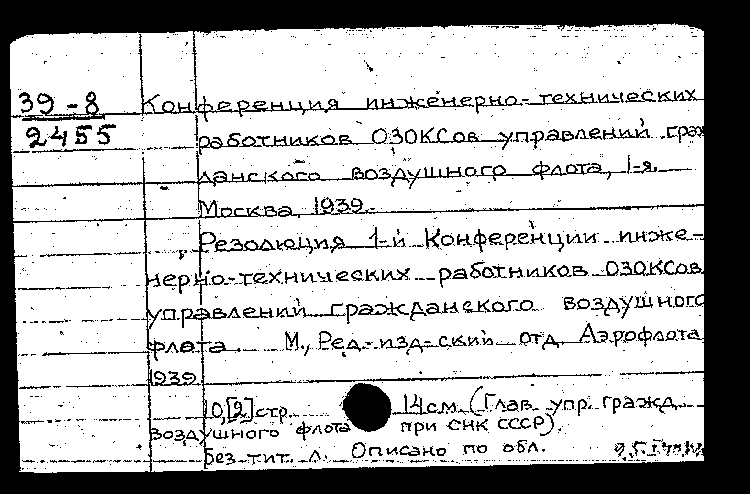 39-8
2455
Конференция инженерно-технических
работников ОЗОКСов управлений граж
данского воздушного флота, 1-я.
Москва. 1939.
Резолюция 1-й Конференции инже-
нерно-технических работников ОЗОКСов
управлений гражданского воздушного
флота. М., Ред.-изд-ский отд. Аэрофлота
1939
10,[2]стр. 14см. (Глав. упр. гражд.
воздушного флота при СНК СССР).
Без тит. л. Описано по обл.